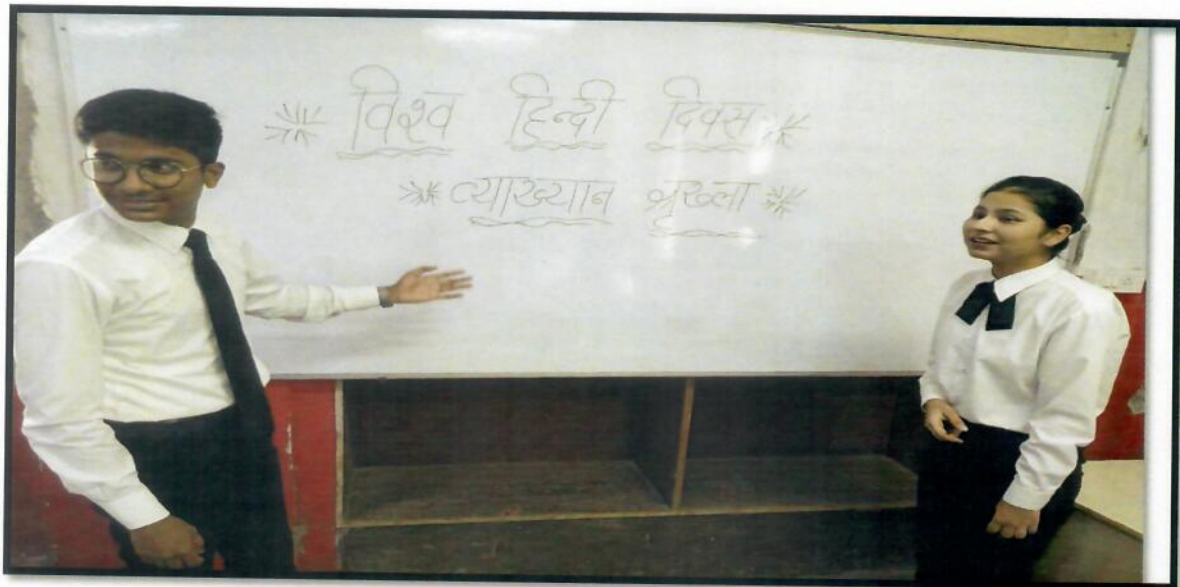 विश्व हिन्दी दिवस
व्याख्यान श्रृख्ला